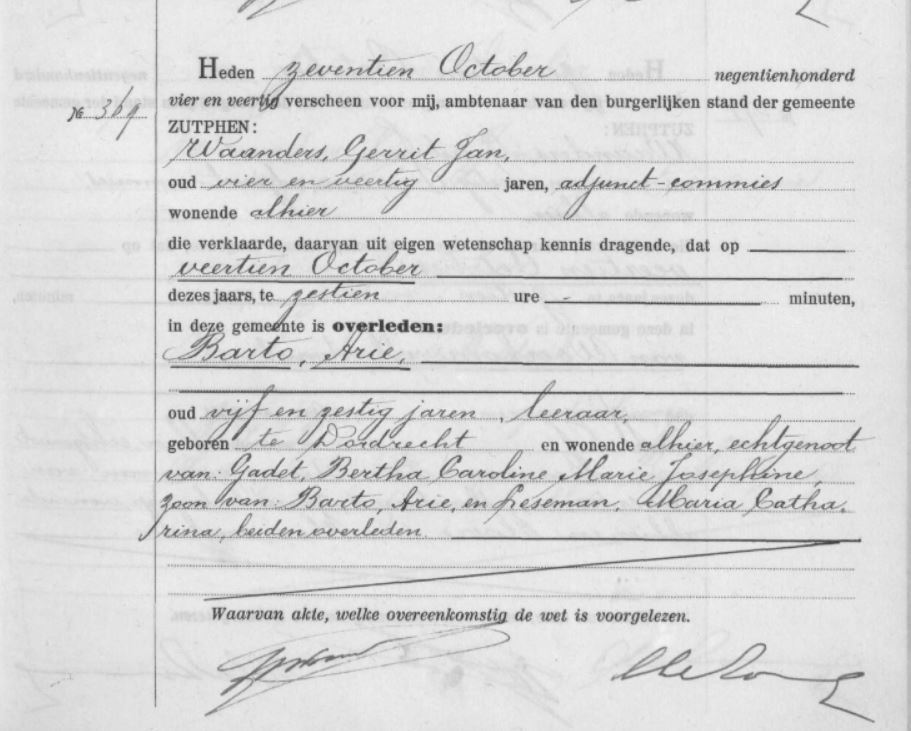 Heden zeventien October negentienhonderd
vier en veertig verscheen voor mij, ambtenaar van den burgerlijken stand der gemeente
№ 369
ZUTPHEN:
Waanders, Gerrit Jan,
oud vier en veertig jaren, adjunct-commies
wonende alhier
die verklaarde, daarvan uit eigen wetenschap kennis dragende, dat op
veertien October
dezes jaars, te zestien ure - minuten,
in deze gemeente is overleden:
Barto, Arie,
oud vijf en zestig jaren, leeraar,
geboren te Dordrecht en wonende alhier, echtgenoot
van: Gadet, Bertha Caroline Marie Josephine,
zoon van: Barto, Arie, en Leseman, Maria Catha-
rina, beiden overleden.
Waarvan akte, welke overeenkomstig de wet is voorgelezen.